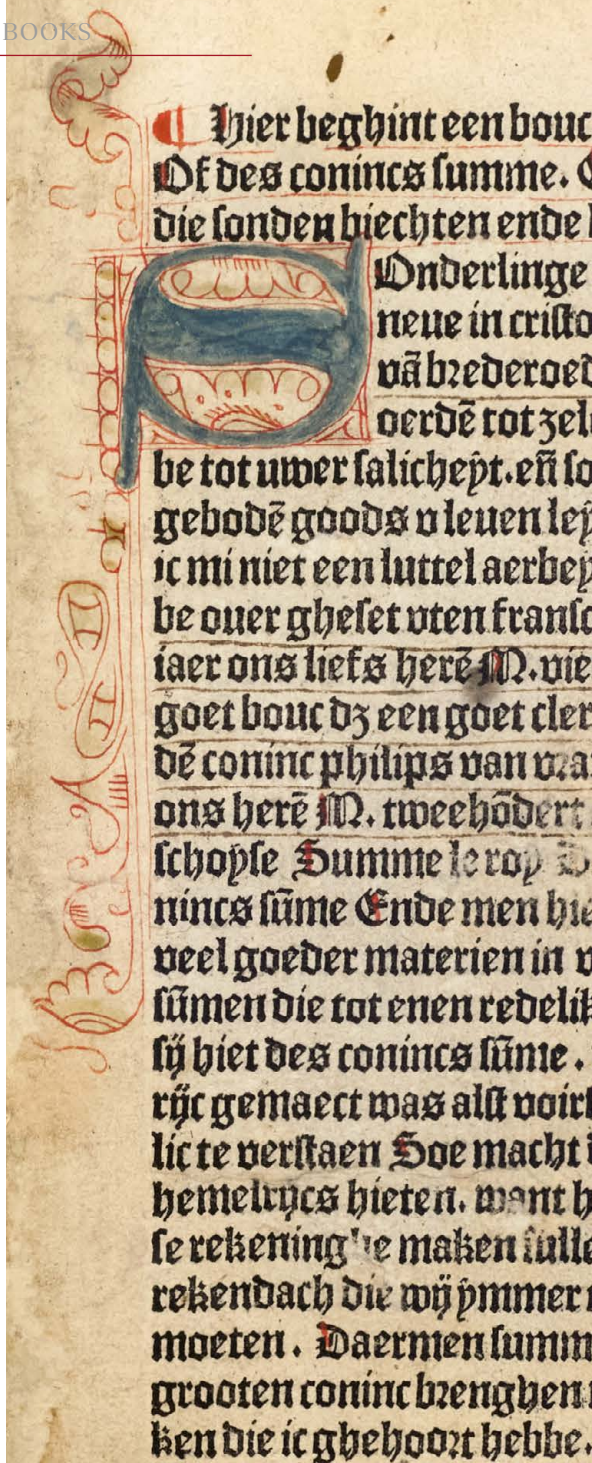 BOOKS
¶ Hier beghint een bouc
Of des conincs summe.
die sonden biechten ende
SOnderlinge
neue in cristo
vā brederoed
oerdē tot zel
be tot uwer salicheyt. eñ so
gebodē goods v leuen ley
ic mi niet een luttel aerbey
be ouer gheset vten fransc
iaer ons liefs herē M. vie
goet bouc dz een goet cler
dē coninc philips van vra
ons herē M. tweehōdert
schoyse Summe le roy
nincs sūme Ende men hie
veel goeder materien in v
sūmen die tot enen redelik
sij hiet des conincs sūme.
rijc gemaect was alst voirs
lic te verstaen Soe macht
hemelrijcs hieten. want h
se rekeninghe maken sulle
rekendach die wij ymmer
moeten. Daermen summ
grooten coninc brenghen
ken die ic ghehoort hebbe.